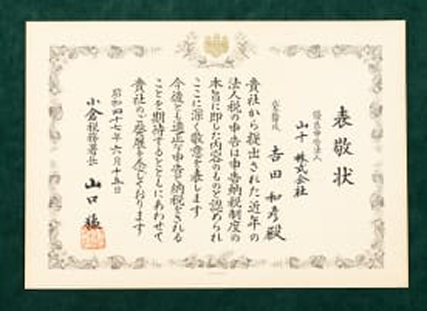 表敬状
優良申告法人
山十株式会社
代表取締役
吉田和彦殿
貴社から提出された近年の
法人税の申告は申告納税制度の
本旨に即した内容のものと認められ
ここに深く敬意を表します
今後とも適正な申告と納税をされる
ことを期待するとともにあわせて
貴社のご発展を念じております
昭和四十七年六月十五日
小倉税務署長
山口